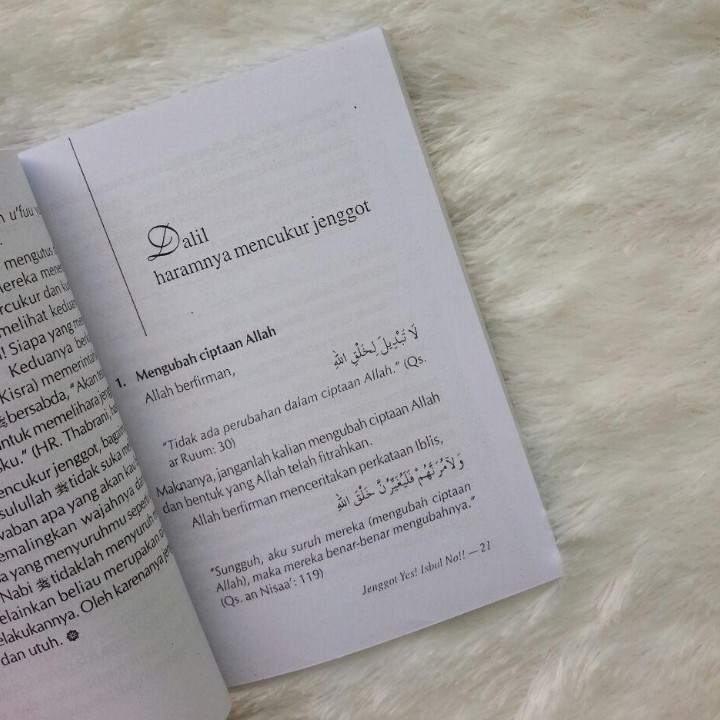 u'fuu
mengutus
mereka mene
rcukur dan ku
melihat kedua
Siapa yang me
Keduanya ber
Kisra) memerintah
bersabda, "Akan te
untuk memelihara jeng
ku." (HR. Thabrani, ha
encukur jenggot, bagai
sulullah ﷺ tidak suka m
waban apa yang akan kau
emalingkan wajahnya da
a yang menyuruhmu sepert
Nabi ﷺ tidaklah menyuruh
elainkan beliau merupakan
elakukannya. Oleh karenanya je
dan utuh.
Dalil
haramnya mencukur jenggot
1. Mengubah ciptaan Allah
Allah berfirman,
لَا تَبْدِيلَ لِخَلْقِ اللهِ
"Tidak ada perubahan dalam ciptaan Allah." (Qs.
ar Ruum: 30)
Maknanya, janganlah kalian mengubah ciptaan Allah
dan bentuk yang Allah telah fitrahkan.
Allah berfirman menceritakan perkataan Iblis,
وَلَآمُرَنَّهُمْ فَلَيُغَيِّرُنَّ خَلْقَ اللهِ
"Sungguh, aku suruh mereka (mengubah ciptaan
Allah), maka mereka benar-benar mengubahnya."
(Qs. an Nisaa': 119)
Jenggot Yes! Isbal No!! — 21